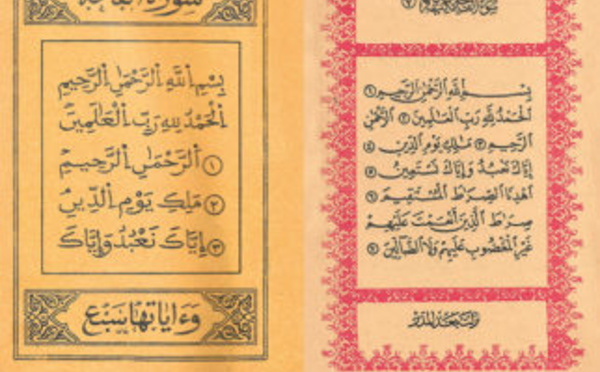 بِسْمِ اللَّهِ الرَّحْمَٰنِ الرَّحِيمِ ١
الْحَمْدُ لِلَّهِ رَبِّ الْعَالَمِينَ ٢ الرَّحْمَٰنِ
الرَّحِيمِ ٣ مَٰلِكِ يَوْمِ الدِّينِ ٤
إِيَّاكَ نَعْبُدُ وَإِيَّاكَ نَسْتَعِينُ ٥
اهْدِنَا الصِّرَاطَ الْمُسْتَقِيمَ ٦
صِرَاطَ الَّذِينَ أَنْعَمْتَ عَلَيْهِمْ
غَيْرِ الْمَغْضُوبِ عَلَيْهِمْ وَلَا الضَّالِّينَ ٧
سورة
بِسْمِ اللَّهِ الرَّحْمَٰنِ الرَّحِيمِ
الْحَمْدُ لِلَّهِ رَبِّ الْعَالَمِينَ
١ الرَّحْمَٰنِ الرَّحِيمِ
٢ مَلِكِ يَوْمِ الدِّينِ
٣ إِيَّاكَ نَعْبُدُ وَإِيَّاكَ
وَءَايَاتُهَا سَبْعٌ